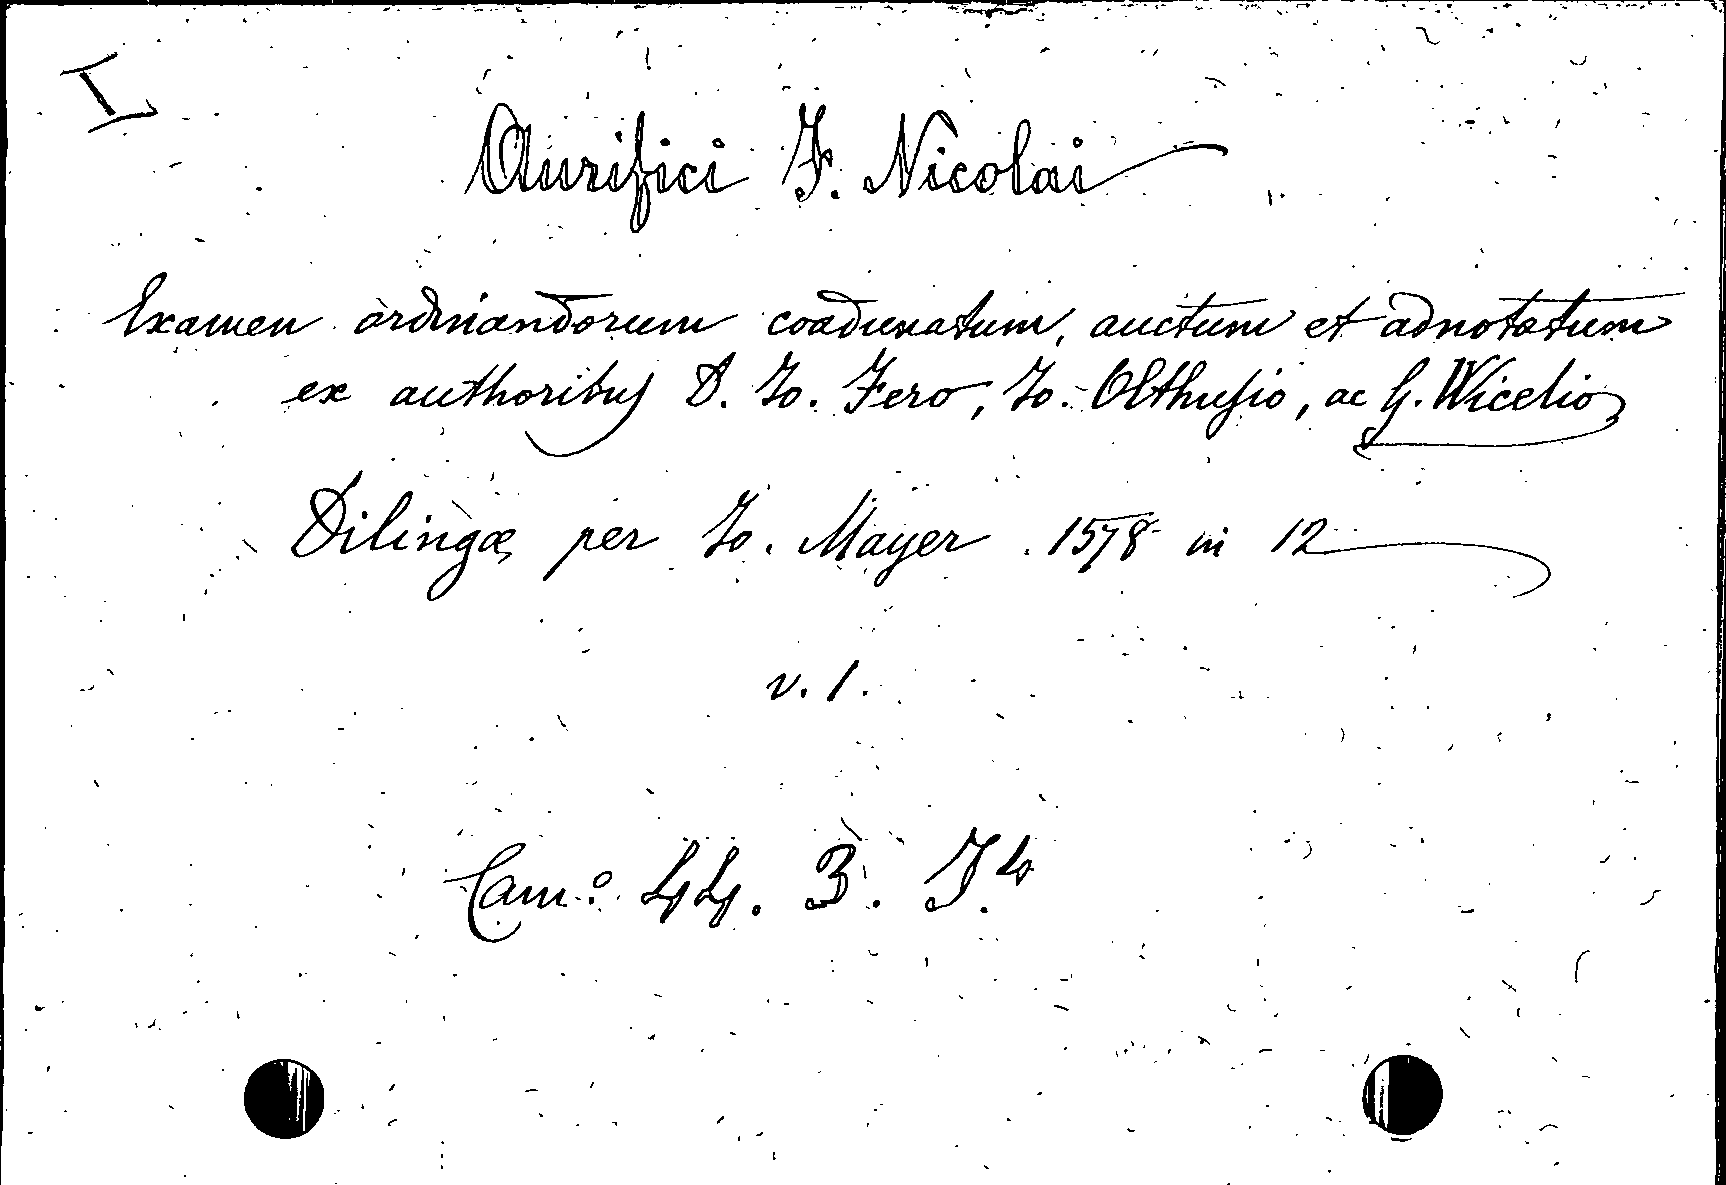 I
Aurifici F. Nicolai
Examen ordinandorum coadunatum, auctum et adnotatum
ex authoribus D. Jo. Fero, Jo. Olthusio, ac G. Wicelio
Dilingæ per Jo. Mayer 1578 in 12
v. 1.
Cam.º 44. 3. J.